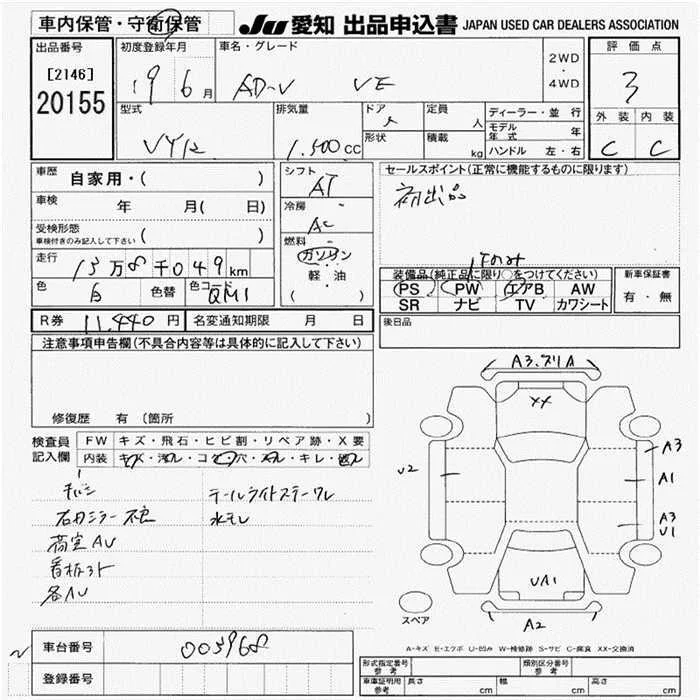 車内保管・守衛保管
JU 愛知 出品申込書 JAPAN USED CAR DEALERS ASSOCIATION
出品番号
[2146]
20155
初度登録年月
19 6 月
車名・グレード
AD-V VE
2WD
・
4WD
評価点
3
外装 内装
C C
型式
VY12
排気量
1.500 CC
ドア
定員 人
形状
積載 kg
ディーラー・並行
モデル年式 年
ハンドル 左・右
車歴 自家用・( )
車検 年 月( 日)
受検形態
車検付きのみ記入して下さい ( )
走行 13万8千049km
色 白 色替 色コード QM1
シフト
AT
冷房
AC
燃料
ガソリン
軽油
( )
セールスポイント(正常に機能するものに限ります)
初出品
装備品(純正品に限り○をつけてください)
PS PW エアB AW
SR ナビ TV カワシート
新車保証書
有・無
R券 11,440円 名変通知期限 月 日
後日品
注意事項申告欄(不具合内容等は具体的に記入して下さい)
修復歴 有 (箇所 )
検査員
記入欄
FW キズ・飛石・ヒビ割・リペア跡・X要
内装 キズ・汚れ・コゲ・穴・スレ・キレ・破れ
テールライトステーワレ
水モレ
荷室AU
看板ヌケ
各AU
A3.ズリA
XX
U2
A3
A1
A3
U1
UA1
A2
スペア
A-キズ E-エクボ U-凹み W-補修跡 S-サビ C-腐食 XX-交換済
車台番号 003968
登録番号
形式指定番号
参考
類別区分番号
参考
車庫証明用
参考
長さ cm 幅 cm 高さ cm